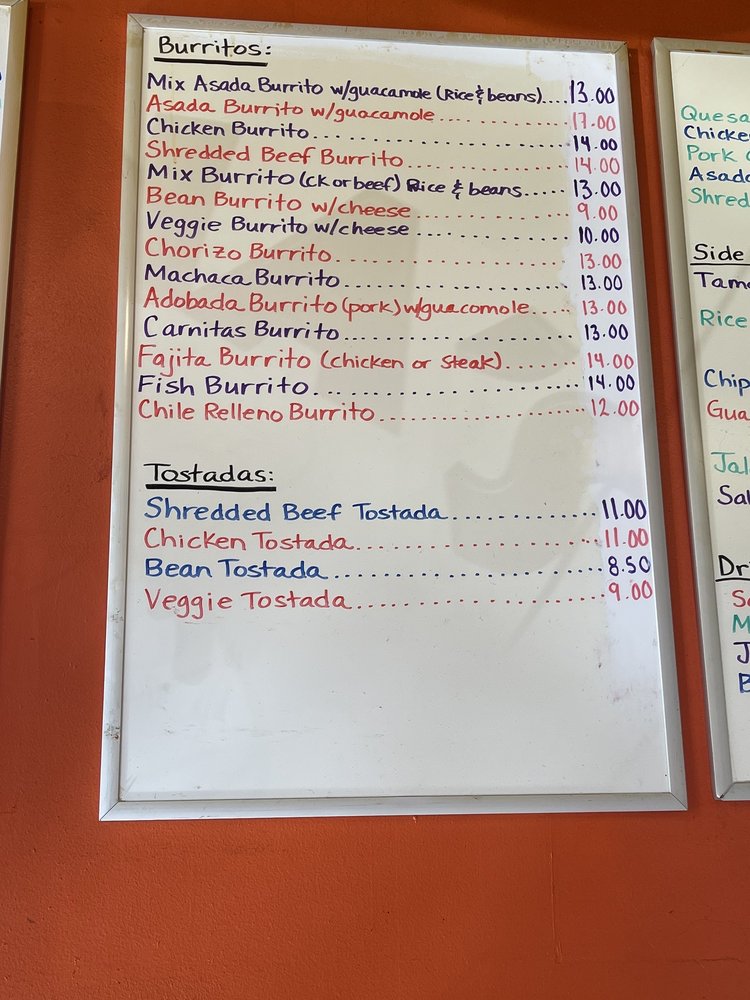 Burritos:
Mix Asada Burrito w/guacamole (Rice & beans)....13.00
Asada Burrito w/guacamole..................17.00
Chicken Burrito..............................14.00
Shredded Beef Burrito.....................14.00
Mix Burrito (ck or beef) Rice & beans......13.00
Bean Burrito w/cheese.....................9.00
Veggie Burrito w/cheese...................10.00
Chorizo Burrito............................13.00
Machaca Burrito...........................13.00
Adobada Burrito (pork) w/guacomole.....13.00
Carnitas Burrito...........................13.00
Fajita Burrito (chicken or steak).........14.00
Fish Burrito...............................14.00
Chile Relleno Burrito......................12.00
Tostadas:
Shredded Beef Tostada.................11.00
Chicken Tostada..........................11.00
Bean Tostada.............................8.50
Veggie Tostada..........................9.00
Quesa
Chicke
Pork
Asada
Shred
Side
Tama
Rice
Chip
Gua
Jal
Sal
Dri
S
M
J
B